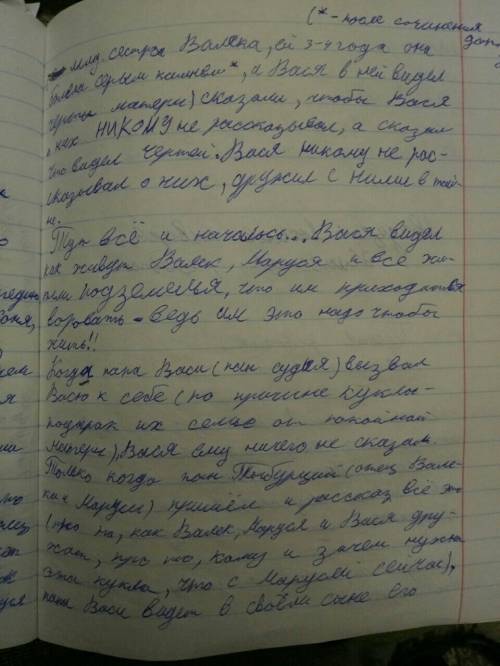 (*-после сочинения
допи
млад. сестра Валека, ей 3-4 года она
болела серым камнем*, а Вася в ней видел
черты матери) сказали, чтобы Вася
о них НИКОМУ не рассказывал, а сказал
что видел чертей. Вася никому не рас-
сказывал о них, дружил с ними в тай-
не.
Тут всё и началось... Вася видел
как живут Валек, Маруся и все жи-
тели подземелья, что им приходится
воровать - ведь им это надо чтобы
жить!!
Когда папа Васи (пан судья) вызвал
Васю к себе (по причине куклы-
подарок их семье от покойной
матери), Вася ему ничего не сказал.
Только когда пан Тыбурций (отец Вале-
ка и Маруси) пришёл и рассказ всё это
(про то, как Валек, Маруся и Вася дру-
жат, про то, кому и зачем нужна
эта кукла, что с Марусей сейчас),
папа Васи видет в своём сыне его